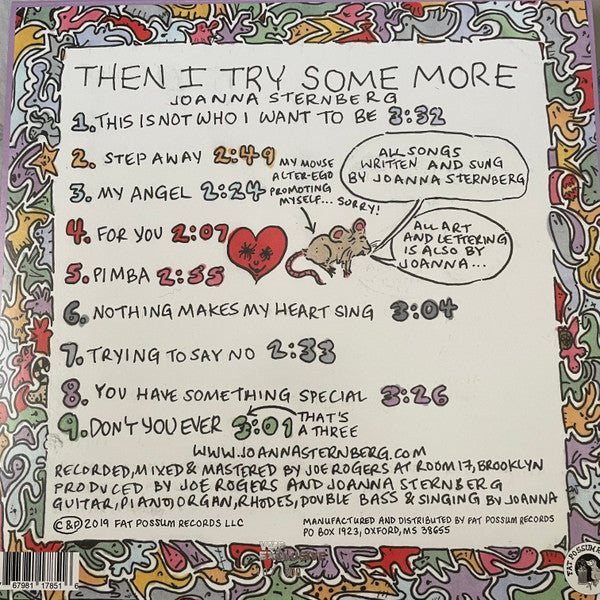 THEN I TRY SOME MORE
JOANNA STERNBERG
1. THIS IS NOT WHO I WANT TO BE 3:32
2. STEP AWAY 2:49
MY MOUSE
ALTER-EGO
PROMOTING
MYSELF... SORRY!
ALL SONGS
WRITTEN AND SUNG
BY JOANNA STERNBERG
3. MY ANGEL 2:24
4. FOR YOU 2:07
ALL ART
AND LETTERING
IS ALSO BY
JOANNA...
5. PIMBA 2:55
6. NOTHING MAKES MY HEART SING 3:04
7. TRYING TO SAY NO 2:33
8. YOU HAVE SOMETHING SPECIAL 3:26
9. DON'T YOU EVER 3:01
THAT'S
A THREE
WWW.JOANNASTERNBERG.COM
RECORDED, MIXED & MASTERED BY JOE ROGERS AT ROOM 17, BROOKLYN
PRODUCED BY JOE ROGERS AND JOANNA STERNBERG
GUITAR, PIANO, ORGAN, RHODES, DOUBLE BASS & SINGING BY JOANNA
©&℗ 2019 FAT POSSUM RECORDS LLC
MANUFACTURED AND DISTRIBUTED BY FAT POSSUM RECORDS
PO BOX 1923, OXFORD, MS 38655
67981 17851 6
FAT POSSUM